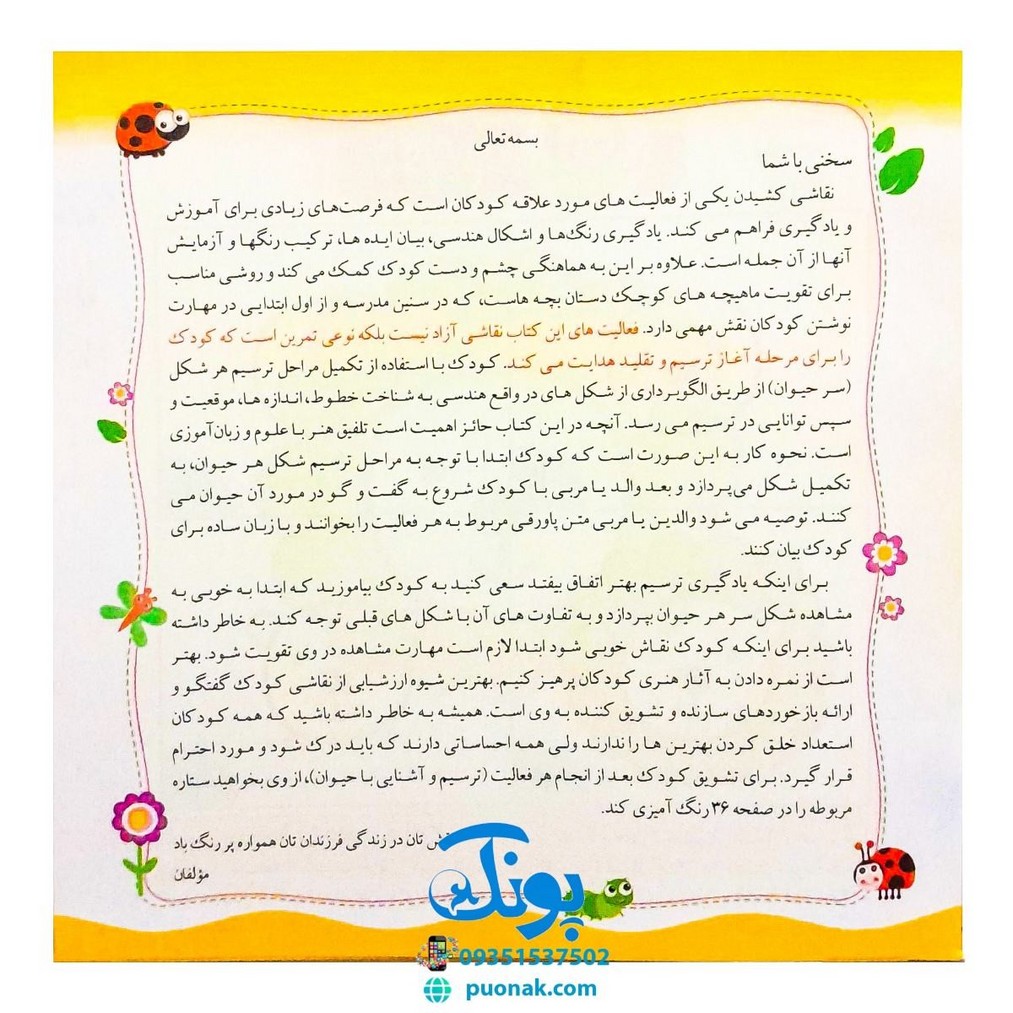 بسمه تعالی
سخنی با شما
نقاشی کشیدن یکی از فعالیت های مورد علاقه کودکان است که فرصت‌های زیادی برای آموزش
و یادگیری فراهم می کند. یادگیری رنگ‌ها و اشکال هندسی، بیان ایده ها، ترکیب رنگها و آزمایش
آنها از آن جمله است. علاوه بر این به هماهنگی چشم و دست کودک کمک می کند و روشی مناسب
برای تقویت ماهیچه های کوچک دستان بچه هاست، که در سنین مدرسه و از اول ابتدایی در مهارت
نوشتن کودکان نقش مهمی دارد. فعالیت های این کتاب نقاشی آزاد نیست بلکه نوعی تمرین است که کودک
را برای مرحله آغاز ترسیم و تقلید هدایت می کند. کودک با استفاده از تکمیل مراحل ترسیم هر شکل
(سر حیوان) از طریق الگوبرداری از شکل های در واقع هندسی به شناخت خطوط، اندازه ها، موقعیت و
سپس توانایی در ترسیم می رسد. آنچه در این کتاب حائز اهمیت است تلفیق هنر با علوم و زبان‌آموزی
است. نحوه کار به این صورت است که کودک ابتدا با توجه به مراحل ترسیم شکل هر حیوان، به
تکمیل شکل می‌پردازد و بعد والد یا مربی با کودک شروع به گفت و گو در مورد آن حیوان می
کنند. توصیه می شود والدین یا مربی متن پاورقی مربوط به هر فعالیت را بخوانند و با زبان ساده برای
کودک بیان کنند.
برای اینکه یادگیری ترسیم بهتر اتفاق بیفتد سعی کنید به کودک بیاموزید که ابتدا به خوبی به
مشاهده شکل سر هر حیوان بپردازد و به تفاوت های آن با شکل های قبلی توجه کند. به خاطر داشته
باشید برای اینکه کودک نقاش خوبی شود ابتدا لازم است مهارت مشاهده در وی تقویت شود. بهتر
است از نمره دادن به آثار هنری کودکان پرهیز کنیم. بهترین شیوه ارزشیابی از نقاشی کودک گفتگو و
ارائه بازخوردهای سازنده و تشویق کننده به وی است. همیشه به خاطر داشته باشید که همه کودکان
استعداد خلق کردن بهترین ها را ندارند ولی همه احساساتی دارند که باید درک شود و مورد احترام
قرار گیرد. برای تشویق کودک بعد از انجام هر فعالیت (ترسیم و آشنایی با حیوان)، از وی بخواهید ستاره
مربوطه را در صفحه ۳۶ رنگ آمیزی کند.
تان در زندگی فرزندان تان همواره پر رنگ باد
مؤلفان
پونک
09351537502
puonak.com